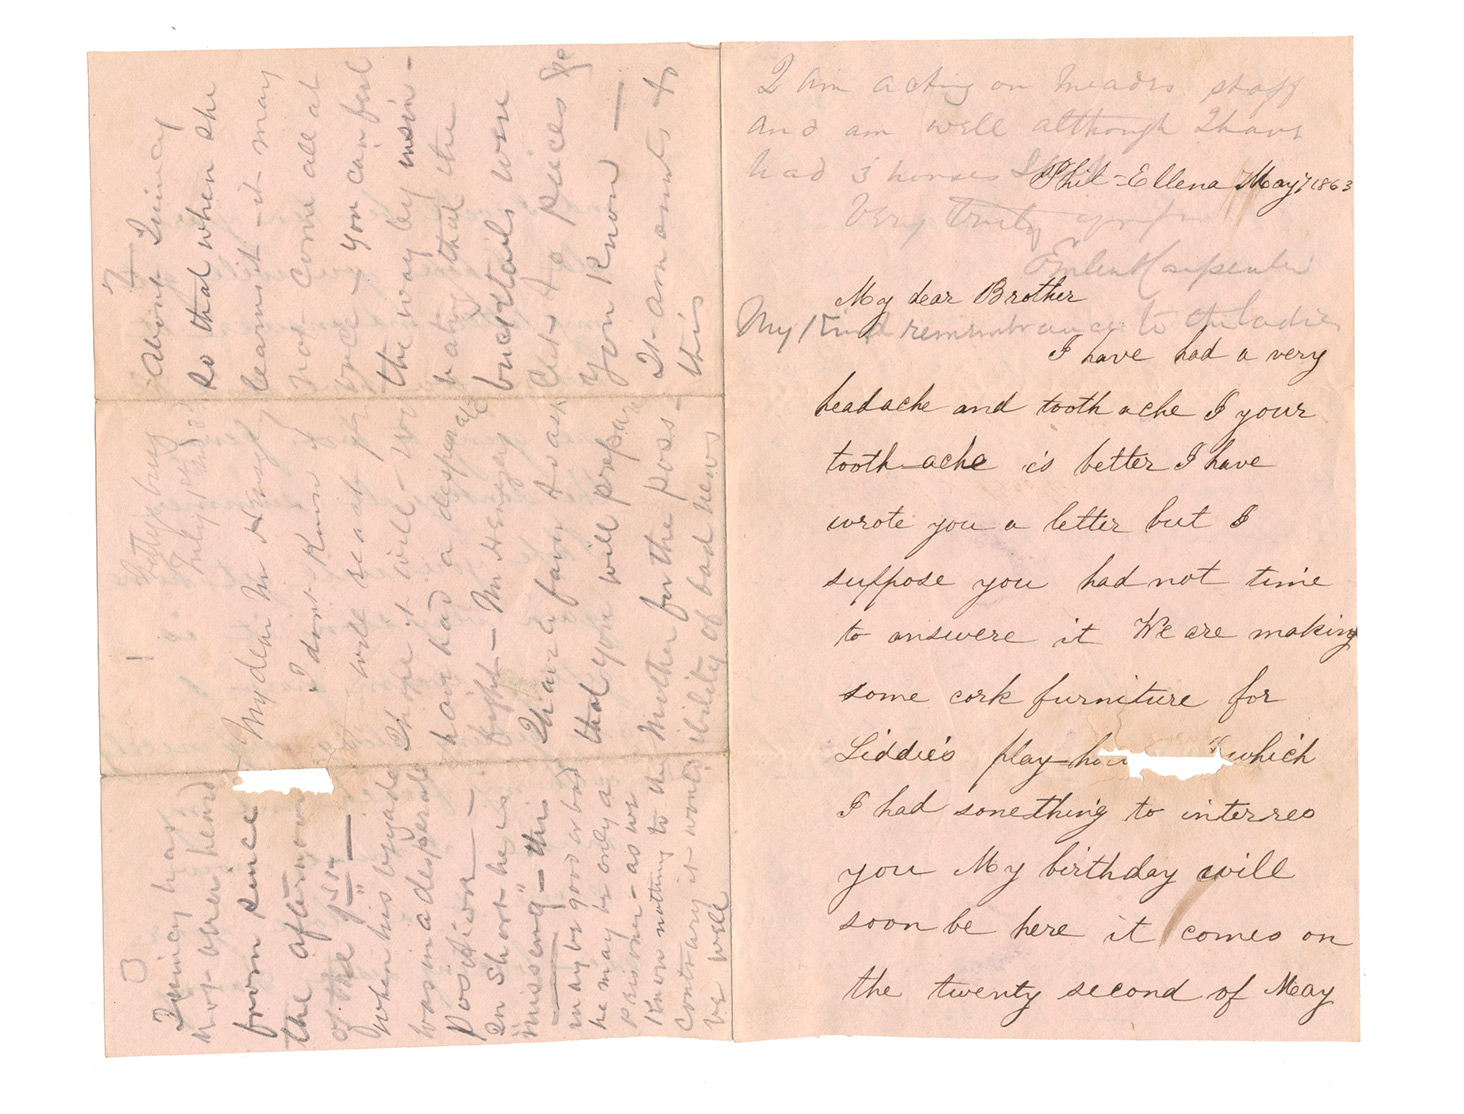 Gettysburg
July 
My dear Mr Henry
I dont know
will send
I hope it will - 
have had a desperate
fight - Mr Henry
I have a favor to ask
that you will prepare
Mother for the poss-
ibility of bad news
2
About Quincy
so that when she
learns it - it may
not come all at
once - You can feel
the way by 
that the
bucktails were
cut to pieces &c
You know —
It amounts to
this
3
Quincy has
not been heard
from since
the afternoon
of the 1st —
when his brigade
was in a desperate
position —
In short he is
"missing" - this
may be good or bad
he may be only a
prisoner - as we
know nothing to the
contrary it would
be well
I am acting on Meades staff
and am well although I have
had 3 horses
Very truly yours
Carpenter
My kind remembrances to the ladies
Phil-Ellena May 7 1863
My dear Brother
I have had a very
headache and tooth ache I your
tooth-ache is better I have
wrote you a letter but I
suppose you had not time
to answere it We are making
some cork furniture for
Liddie's play-hou which
I had something to interres
you My birthday will
soon be here it comes on
the twenty second of May